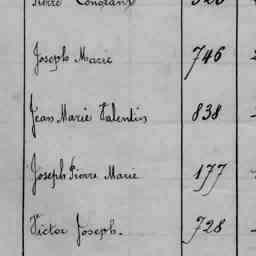 Pierre Constant 320
Joseph Marie 746
Jean Marie Valentin 838
Joseph Pierre Marie 177
Victor Joseph. 728